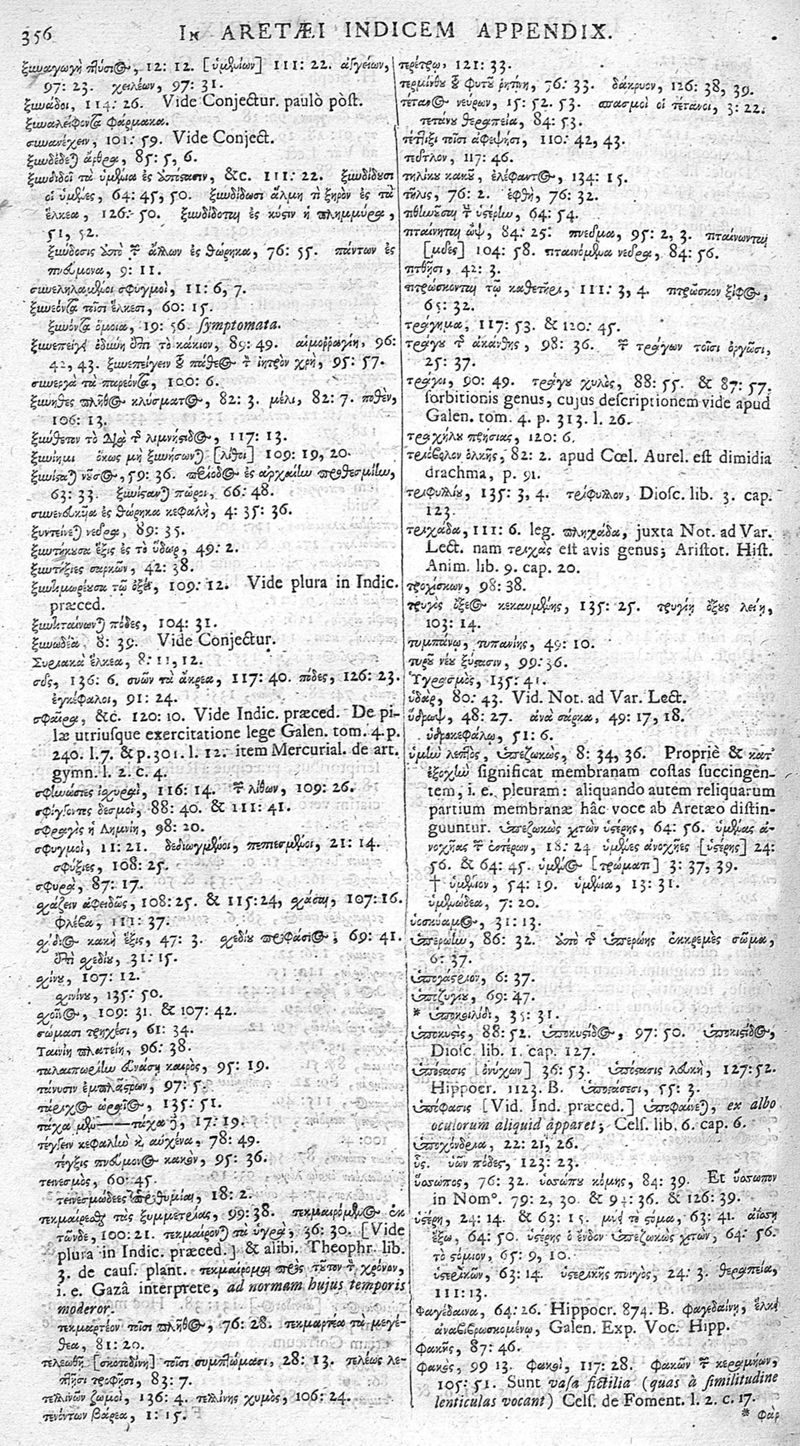 356 IN ARETÆI INDICEM APPENDIX.
ξυναγωγὴ πύσιος, 12: 12. [ὑμένων] 111: 22. ἀγγείων,
97: 23. χειλέων, 97: 31.
ξυνάδοι, 114: 26. Vide Conjectur. paulò pòst.
ξυναλείφοντα φάρμακα.
συνανέχειν, 101: 59. Vide Conject.
ξυνδέδεται ἄρθρα, 85: 5, 6.
ξυνδιδοῖ τὰ ὑμένια ἐς ὑπόστασιν, &c. 111: 22. ξυνδιδοῦσι
οἱ ὑμένες, 64: 45, 50. ξυνδίδωσι ἅλμη τὸ ξηρὸν ἐς τὰ
ἕλκεα, 126: 50. ξυνδίδοται ἐς κύσιν ἡ πλημμύρα,
51, 52.
ξύνδοσις ὑπὸ τῶν ἄλλων ἐς θώρηκα, 76: 55. πάντων ἐς
πνεύμονα, 9: 11.
συνεληλαμένοι σφυγμοί, 11: 6, 7.
ξυνεόντα τοῖσι ἕλκεσι, 60: 15.
ξυνεόντα ὅμοια, 19: 56. symptomata.
ξυνεπείγει ὀδύνη ἐπὶ τὸ κάκιον, 89: 49. αἱμορραγίη, 96:
42, 43. ξυνεπείγειν τοῦ πάθεος τὸν ἰητρὸν χρὴ, 95: 57.
συνεργὰ τὰ παρεόντα, 100: 6.
ξύνηθες πλῆθος κλύσματος, 82: 3. μέλι, 82: 7. ποθὲν,
106: 13.
ξύνθετον τὸ διὰ τῆς λιμνήστιδος, 117: 13.
ξυνίημι ὅκως μὴ ξυνήσωνται [λίθοι] 109: 19, 20.
ξυνίσταται νοῦσος, 59: 36. περίοδος ἐς ἀρχαίην προθεσμίην,
63: 33. ξυνίστανται πῶροι, 66: 48.
συνενοῦσα ἐς θώρηκα κεφαλὴ, 4: 35: 36.
ξυντείνεται νεῦρα, 89: 35.
ξυντήκουσα ἕξις ἐς τὸ ὕδωρ, 49: 2.
ξυντήξιες σαρκῶν, 42: 38.
ξυντιμωρέουσα τῷ ὀξέϊ, 109: 12. Vide plura in Indic.
præced.
ξυντιταίνωνται πόδες, 104: 31.
ξυνωδέα, 8: 39. Vide Conjectur.
Συριακὰ ἕλκεα, 8: 11, 12.
σῦς, 136: 6. συῶν τὰ ἄκρεα, 117: 40. πόδες, 126: 23.
ἐγκέφαλοι, 91: 24.
σφαῖρα, &c. 120: 10. Vide Indic. præced. De pi-
læ utriusque exercitatione lege Galen. tom. 4. p.
240. l. 7. & p. 301. l. 12. item Mercurial. de art.
gymn. l. 2. c. 4.
σφηνώσιες ἰσχυραὶ, 116: 14. τῶν λίθων, 109: 26.
σφίγγοντες δεσμοὶ, 88: 40. & 111: 41.
σφραγὶς ἡ Λημνίη, 98: 20.
σφυγμοὶ, 11: 21. δεδιωγμένοι, πεπιεσμένοι, 21: 14.
σφύξιες, 108: 25.
σφυρὰ, 87: 17.
σχάζειν ἀφειδῶς, 108: 25. & 115: 24, σχάσαι, 107: 16.
φλέβα, 111: 37.
σχέσις κακὴ ἕξις, 47: 3. σχεδίου προφάσιος, 69: 41.
ἐπὶ σχεδίου, 31: 15.
σχίνου, 107: 12.
σχινίνου, 135: 50.
σχοῖνος, 109: 31. & 107: 42.
σώμασι τρηχέσι, 61: 34.
Ταινίη πλατείη, 96: 38.
ταλαιπωρίην ἀνύσαι καιρὸς, 95: 19.
τάνυσιν ἐμπλάστρων, 97: 5.
τάριχος ὡραῖος, 135: 51.
τάχα μὲν——τάχα δὲ, 17: 19.
τέγγειν κεφαλὴν καὶ αὐχένα, 78: 49.
τέγξις πνεύμονος κακὸν, 95: 36.
τεινεσμὸς, 60: 45.
τεινεσμώδεες προθυμίαι, 18: 2.
τεκμαίρεσθαι τὰς ξυμμετρίας, 99: 38. τεκμαιρόμενος ἐκ
τῶνδε, 100: 21. τεκμαίρονται τὰ ὑγρὰ, 36: 30. [Vide
plura in Indic. præced.] & alibi. Theophr. lib.
3. de caus. plant. τεκμαίρομαι πρὸς τοῦτον τὸν χρόνον,
i. e. Gazâ interprete, ad normam hujus temporis
moderor.
τεκμαρτέον τοῖσι πλῆθος, 76: 28. τεκμαρτέα τὰ μεγέ-
θεα, 81: 20.
τελεωθῇ [σκοτοδίνη] τοῖσι συμπτώμασι, 28: 13. τελέως λε-
πτῇσι τροφῇσι, 83: 7.
τελλινῶν ζωμοὶ, 136: 4. τελλίνης χυμὸς, 106: 24.
τενόντων βάρεα, 1: 15.
τερέτρῳ, 121: 33.
τερμίνθου τοῦ φυτοῦ ῥητίνη, 76: 33. δάκρυον, 126: 38, 39.
τέτανος νεύρων, 15: 52. 53. σπασμοὶ οἱ τέτανοι, 3: 22.
τετάνου θεραπεία, 84: 53.
τέτηξι τοῖσι ἀφεψήσι, 110: 42, 43.
τεῦτλον, 117: 46.
τηλίκου κακοῦ, ἐλέφαντος, 134: 15.
τῆλις, 76: 2. ἑφθὴ, 76: 32.
τιθῶνται τῶν ὑστέρων, 64: 54.
πταίνηται ὤψ, 84: 25: πνεῦμα, 95: 2, 3. πταίνωνται
[πόδες] 104: 58. πταινόμενα νεῦρα, 84: 56.
πτθῇσι, 42: 3.
τιτρώσκονται τῷ καθετῆρι, 111: 3, 4. τιτρῶσκον ξίφος,
65: 32.
τράγημα, 117: 53. & 120: 45.
τράγου τῆς ἀκάνθης, 98: 36. τῶν τράγων τοῖσι ὀργῶσι,
25: 37.
τράγοι, 90: 49. τράγου χυλὸς, 88: 55. & 87: 57.
sorbitionis genus, cujus descriptionem vide apud
Galen. tom. 4. p. 313. l. 26.
τραχήλου πρήσιας, 120: 6.
τριώβολον ὁλκῆς, 82: 2. apud Cœl. Aurel. est dimidia
drachma, p. 91.
τριφυλλίου, 135: 3, 4. τρίφυλλον, Diosc. lib. 3. cap.
123.
τριχάδα, 111: 6. leg. πληχάδα, juxta Not. ad Var.
Lect. nam τριχὰς est avis genus; Aristot. Hist.
Anim. lib. 9. cap. 20.
τροχίσκων, 98: 38.
τρυγὸς ὄξεος κεκαυμένης, 135: 25. τρυγίη ὄξους λείη,
103: 14.
τυμπάνῳ, τυπανίης, 49: 10.
τυροῦ νέου ξύστασιν, 99: 36.
Ὑγρασμὸς, 135: 41.
ὑδαρ, 80: 43. Vid. Not. ad Var. Lect.
ὕδρωψ, 48: 27. ἀνὰ σάρκα, 49: 17, 18.
ὑδροκεφάλῳ, 51: 6.
ὑμὴν λεπτὸς, ὑπεζωκὼς, 8: 34, 36. Propriè & κατ'
ἐξοχὴν significat membranam costas succingen-
tem, i. e. pleuram: aliquando autem reliquarum
partium membranæ hâc voce ab Aretæo distin-
guuntur. ὑπεζωκὼς χιτὼν ὑστέρης, 64: 56. ὑμένας ἀ-
νοχῆας τῶν ἐντέρων, 18: 24 ὑμένες ἀνοχῆες [ὑστέρης] 24:
56. & 64: 45. ὑμένος [τρώματι] 3: 37, 39.
† ὑμένιον, 54: 19. ὑμένια, 13: 31.
ὑμενώδεα, 7: 20.
ὑοσκύαμος, 31: 13.
ὑπερώην, 86: 32. ὑπὸ τῆς ὑπερώης ἐκκρεμὲς σῶμα,
6: 37.
ὑπογάστριον, 6: 37.
ὑποζυγίου, 69: 47.
* ὑποκοιλίδι, 35: 31.
ὑποκυσὶς, 88: 52. ὑποκυσίδος, 97: 50. ὑποκιστίδος,
Diosc. lib. 1. cap. 127.
ὑπόστασις [ὀνύχων] 36: 53. ὑπόστασις λευκὴ, 127: 52.
Hippocr. 1123. B. ὑποστάσεσι, 55: 3.
ὑπόφασις [Vid. Ind. præced.] ὑποφαίνεται, ex albo
oculorum aliquid apparet; Cels. lib. 6. cap. 6.
ὑποχόνδρια, 22: 21, 26.
ὗς. ὑῶν πόδες, 123: 23.
ὕσσωπος, 76: 32. ὑσσώπου κόμης, 84: 39. Et ὕσσωπον
in Nom°. 79: 2, 30. & 94: 36. & 126: 39.
ὑστέρη, 24: 14. & 63: 15. μύει τὸ στόμα, 63: 41. ἀΐσσῃ
ἔξω, 64: 50. ὑστέρης ὁ ἔνδον ὑπεζωκὼς χιτὼν, 64: 56.
τὸ στόμιον, 65: 9, 10.
ὑστερικῶν, 63: 14. ὑστερικῆς πνιγὸς, 24: 3. θεραπεία,
111: 13.
Φαγέδαινα, 64: 26. Hippocr. 874. B. φαγεδαίνη, ἕλκη
ἀναβιβρωσκομένῳ, Galen. Exp. Voc. Hipp.
φακῆς, 87: 46.
φακὸς, 99 13. φακοὶ, 117: 28. φακῶν τῶν κεραμίων,
105: 51. Sunt vasa fictilia (quas à similitudine
lenticulas vocant) Cels. de Foment. l. 2. c. 17.
* Φάρ